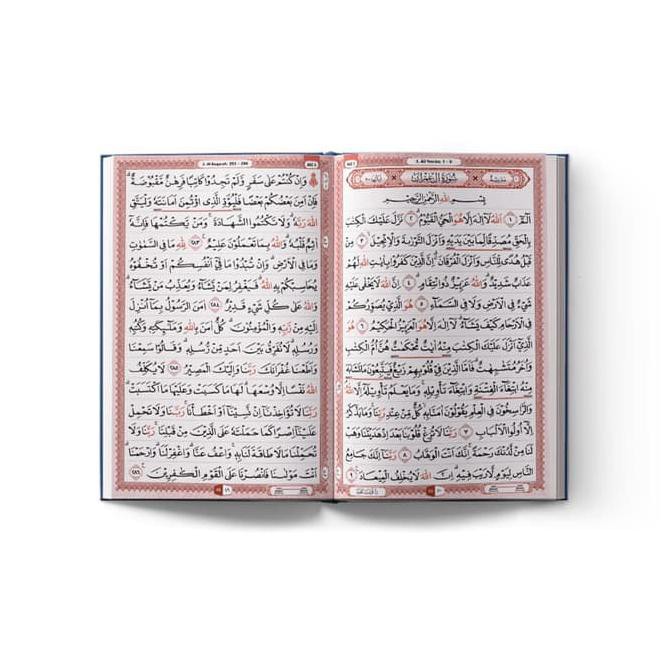 2. Al-Baqarah: 283 - 286
JUZ 3
وَاِنْ كُنْتُمْ عَلٰى سَفَرٍ وَّلَمْ تَجِدُوْا كَاتِبًا فَرِهٰنٌ مَّقْبُوْضَةٌ ۗ
فَاِنْ اَمِنَ بَعْضُكُمْ بَعْضًا فَلْيُؤَدِّ الَّذِى اؤْتُمِنَ اَمَانَتَهٗ وَلْيَتَّقِ
اللّٰهَ رَبَّهٗ ۗ وَلَا تَكْتُمُوا الشَّهَادَةَ ۗ وَمَنْ يَّكْتُمْهَا فَاِنَّهٗٓ
اٰثِمٌ قَلْبُهٗ ۗ وَاللّٰهُ بِمَا تَعْمَلُوْنَ عَلِيْمٌ ۝٢٨٣ لِلّٰهِ مَا فِى السَّمٰوٰتِ
وَمَا فِى الْاَرْضِ ۗ وَاِنْ تُبْدُوْا مَا فِيْٓ اَنْفُسِكُمْ اَوْ تُخْفُوْهُ
يُحَاسِبْكُمْ بِهِ اللّٰهُ ۗ فَيَغْفِرُ لِمَنْ يَّشَاۤءُ وَيُعَذِّبُ مَنْ يَّشَاۤءُ ۗ
وَاللّٰهُ عَلٰى كُلِّ شَيْءٍ قَدِيْرٌ ۝٢٨٤ اٰمَنَ الرَّسُوْلُ بِمَآ اُنْزِلَ
اِلَيْهِ مِنْ رَّبِّهٖ وَالْمُؤْمِنُوْنَ ۗ كُلٌّ اٰمَنَ بِاللّٰهِ وَمَلٰۤىِٕكَتِهٖ وَكُتُبِهٖ
وَرُسُلِهٖ ۗ لَا نُفَرِّقُ بَيْنَ اَحَدٍ مِّنْ رُّسُلِهٖ ۗ وَقَالُوْا سَمِعْنَا
وَاَطَعْنَا غُفْرَانَكَ رَبَّنَا وَاِلَيْكَ الْمَصِيْرُ ۝٢٨٥ لَا يُكَلِّفُ
اللّٰهُ نَفْسًا اِلَّا وُسْعَهَا ۗ لَهَا مَا كَسَبَتْ وَعَلَيْهَا مَا اكْتَسَبَتْ ۗ
رَبَّنَا لَا تُؤَاخِذْنَآ اِنْ نَّسِيْنَآ اَوْ اَخْطَأْنَا ۚ رَبَّنَا وَلَا تَحْمِلْ
عَلَيْنَآ اِصْرًا كَمَا حَمَلْتَهٗ عَلَى الَّذِيْنَ مِنْ قَبْلِنَا ۚ رَبَّنَا وَلَا
تُحَمِّلْنَا مَا لَا طَاقَةَ لَنَا بِهٖ ۚ وَاعْفُ عَنَّا ۗ وَاغْفِرْ لَنَا ۗ وَارْحَمْنَا ۗ
اَنْتَ مَوْلٰىنَا فَانْصُرْنَا عَلَى الْقَوْمِ الْكٰفِرِيْنَ ۝٢٨٦
٤٩
3. Ali 'Imran: 1 - 9
سُوْرَةُ اٰلِ عِمْرَانَ
بِسْمِ اللّٰهِ الرَّحْمٰنِ الرَّحِيْمِ
الۤمّۤ ۝١ اَللّٰهُ لَآ اِلٰهَ اِلَّا هُوَ الْحَيُّ الْقَيُّوْمُ ۝٢ نَزَّلَ عَلَيْكَ الْكِتٰبَ
بِالْحَقِّ مُصَدِّقًا لِّمَا بَيْنَ يَدَيْهِ وَاَنْزَلَ التَّوْرٰىةَ وَالْاِنْجِيْلَ ۝٣ مِنْ
قَبْلُ هُدًى لِّلنَّاسِ وَاَنْزَلَ الْفُرْقَانَ ۗ اِنَّ الَّذِيْنَ كَفَرُوْا بِاٰيٰتِ اللّٰهِ لَهُمْ
عَذَابٌ شَدِيْدٌ ۗ وَاللّٰهُ عَزِيْزٌ ذُو انْتِقَامٍ ۝٤ اِنَّ اللّٰهَ لَا يَخْفٰى عَلَيْهِ
شَيْءٌ فِى الْاَرْضِ وَلَا فِى السَّمَاۤءِ ۝٥ هُوَ الَّذِيْ يُصَوِّرُكُمْ
فِى الْاَرْحَامِ كَيْفَ يَشَاۤءُ ۗ لَآ اِلٰهَ اِلَّا هُوَ الْعَزِيْزُ الْحَكِيْمُ ۝٦ هُوَ
الَّذِيْٓ اَنْزَلَ عَلَيْكَ الْكِتٰبَ مِنْهُ اٰيٰتٌ مُّحْكَمٰتٌ هُنَّ اُمُّ الْكِتٰبِ
وَاُخَرُ مُتَشٰبِهٰتٌ ۗ فَاَمَّا الَّذِيْنَ فِيْ قُلُوْبِهِمْ زَيْغٌ فَيَتَّبِعُوْنَ مَا تَشَابَهَ
مِنْهُ ابْتِغَاۤءَ الْفِتْنَةِ وَابْتِغَاۤءَ تَأْوِيْلِهٖ ۚ وَمَا يَعْلَمُ تَأْوِيْلَهٗٓ اِلَّا اللّٰهُ ۘ
وَالرّٰسِخُوْنَ فِى الْعِلْمِ يَقُوْلُوْنَ اٰمَنَّا بِهٖ ۙ كُلٌّ مِّنْ عِنْدِ رَبِّنَا ۚ وَمَا يَذَّكَّرُ
اِلَّآ اُولُوا الْاَلْبَابِ ۝٧ رَبَّنَا لَا تُزِغْ قُلُوْبَنَا بَعْدَ اِذْ هَدَيْتَنَا وَهَبْ
لَنَا مِنْ لَّدُنْكَ رَحْمَةً ۚ اِنَّكَ اَنْتَ الْوَهَّابُ ۝٨ رَبَّنَآ اِنَّكَ جَامِعُ
النَّاسِ لِيَوْمٍ لَّا رَيْبَ فِيْهِ ۗ اِنَّ اللّٰهَ لَا يُخْلِفُ الْمِيْعَادَ ۝٩
٥٠